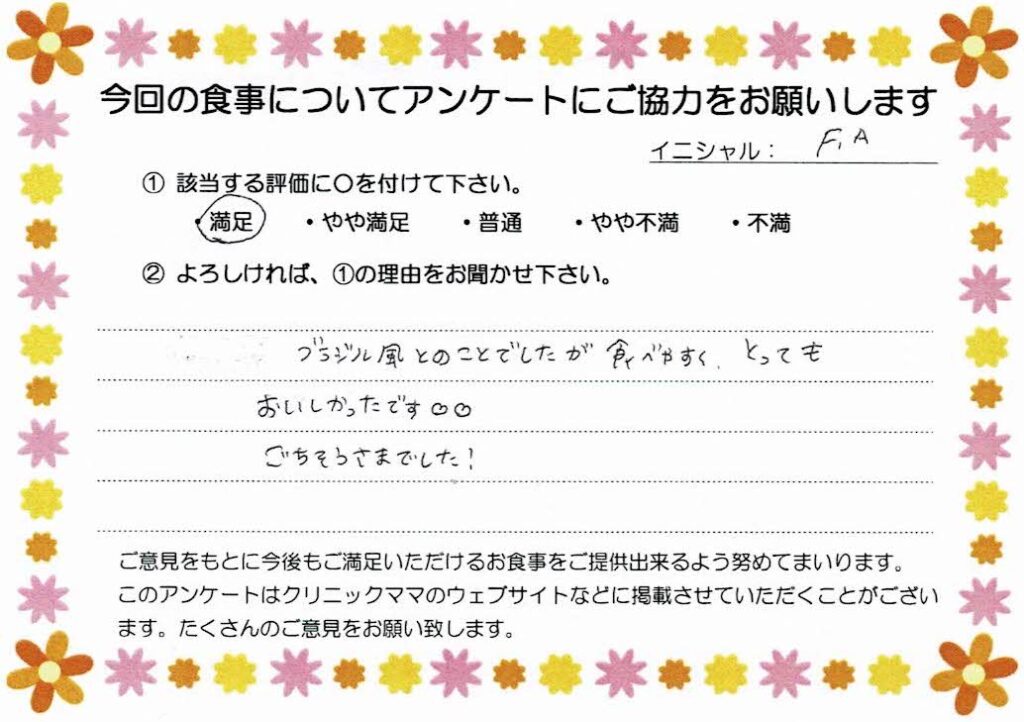 今回の食事についてアンケートにご協力をお願いします
イニシャル： F.A
① 該当する評価に○を付けて下さい。
・満足 ・やや満足 ・普通 ・やや不満 ・不満
② よろしければ、①の理由をお聞かせ下さい。
ブラジル風とのことでしたが食べやすく、とっても
おいしかったです
ごちそうさまでした！
ご意見をもとに今後もご満足いただけるお食事をご提供出来るよう努めてまいります。
このアンケートはクリニックママのウェブサイトなどに掲載させていただくことがござい
ます。たくさんのご意見をお願い致します。